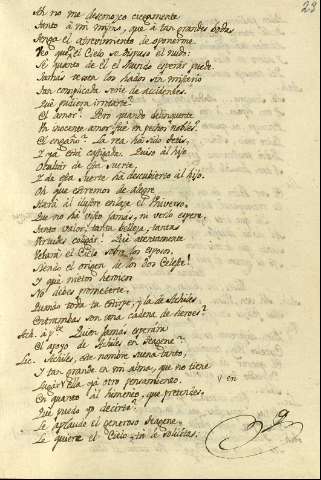 23
Ah no me desmoxo ciegamente
tanto à mi mismo, que à tan grandes bodas
tenga el atrevimento de oponerme.
Veo que el Cielo se dispuso el nudo:
Se quanto de El el Mundo esperar puede.
Jamás texen los hados sin misterio
tan complicada serie de accidentes.
Que pudiera irritarte?
El amor? Pero quando delinquente
Un inocente amor fue en pechos nobles?
El engaño? La rea há sido Tetis,
Y ya está castigada. Quiso al hijo
Ocultar de esta suerte,
Y de esta suerte há descubierto al hijo.
Oh que extremos de alegre
Hará al ilustre enlaze el Universo,
Que no há visto jamás, ni verlo espere,
tanto valor, tanta belleza, tantas
Virtudes coligar! Qué atentamente
Velará el Cielo sobre los esposos,
Siendo el origen de los dos Celeste!
Y que nietos heroicos
No debes prometerte,
Quando toda tu estirpe, y la de Achiles
Entrambas son una cadena de heroes?
Ach. à pte. Quien jamás esperara
El apoyo de Achiles en Teagene?
Lic. Achiles, este nombre suena tanto,
Y tan grande en mi alma, que no tiene
Lugar en ella ya otro pensamiento.
Y en
En quanto al himeneo, que pretendes,
Qué puedo yo decirte?
Le aplaude el generoso Teagene,
Le quiere el Cielo, tú le solicitas.